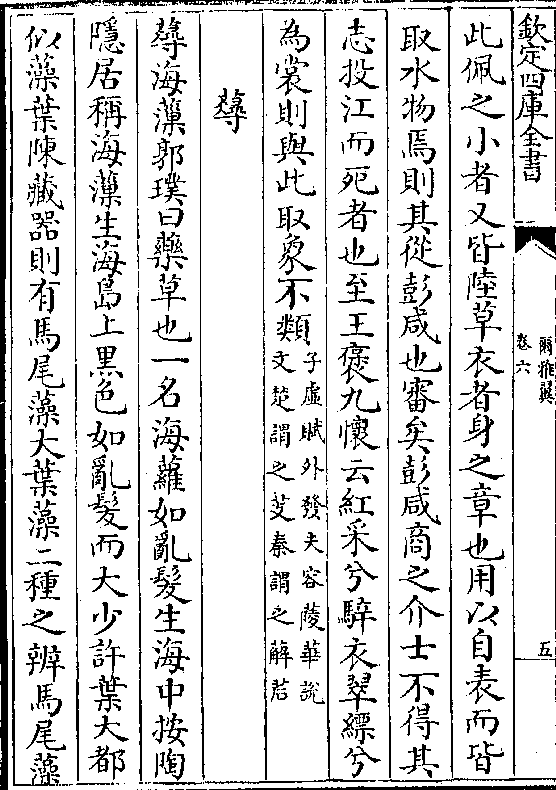 欽定四庫全書
爾雅翼
卷六
五
此佩之小者又皆陸草衣者身之章也用以自表而皆
取水物焉則其從彭咸也審矣彭咸商之介士不得其
志投江而死者也至王褒九懷云紅采兮騂衣翠縹兮
為裳則與此取象不類子虛賦外發夫容䔖華說
文楚謂之芰秦謂之薢茩
蕁
蕁海薻郭璞曰藥草也一名海蘿如亂髮生海中按陶
隱居稱海薻生海島上黑色如亂髮而大少許葉大都
似藻葉陳藏器則有馬尾藻大葉藻二種之辨馬尾藻